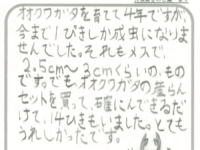 オオクワガタを育てて4年ですが、
今まで1ぴきしか成虫になりま
せんでした。それもメスで、
2.5cm〜3cmくらいの、もの
です。でもオオクワガタの産らん
セットを買って、確にんできるだけ
で、14ひきもいました。とても
うれしかったです。